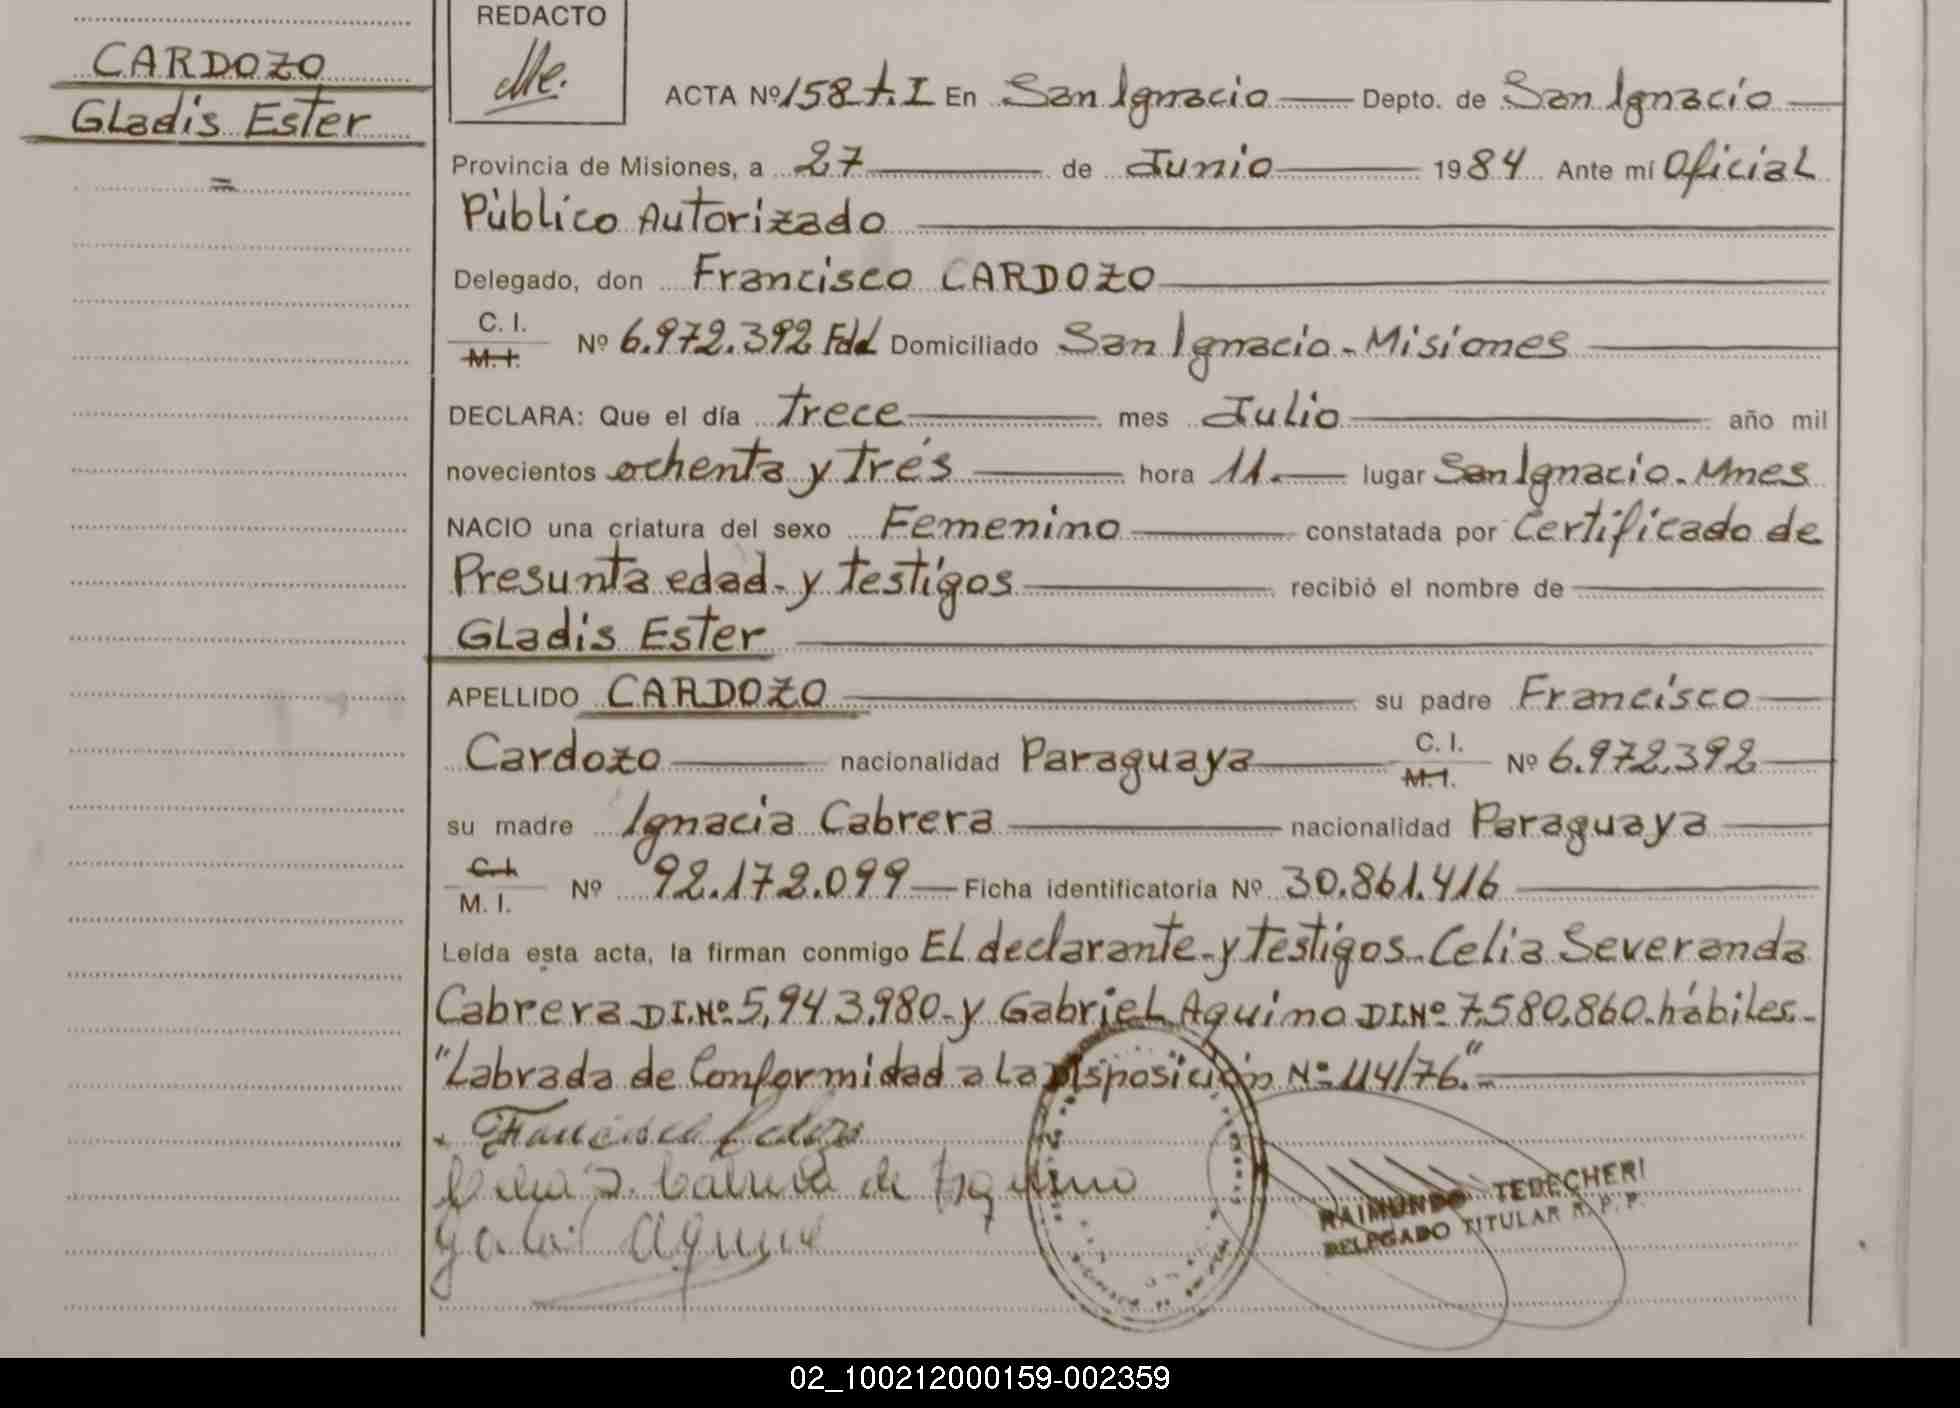 CARDOZO
Gladis Ester
=
REDACTO
ACTA Nº 158 t.I En San Ignacio Depto. de San Ignacio
Provincia de Misiones, a 27 de Junio 1984 Ante mí Oficial
Público Autorizado
Delegado, don Francisco CARDOZO
C. I.
M. I.
Nº 6.972.392 Fdd Domiciliado San Ignacio - Misiones
DECLARA: Que el día trece mes Julio año mil
novecientos ochenta y trés hora 11.- lugar San Ignacio - Mnes
NACIO una criatura del sexo Femenino constatada por Certificado de
Presunta edad - y testigos recibió el nombre de
Gladis Ester
APELLIDO CARDOZO su padre Francisco
Cardozo nacionalidad Paraguaya C. I. M. I. Nº 6.972.392
su madre Ignacia Cabrera nacionalidad Paraguaya
C. I.
M. I.
Nº 92.172.099 Ficha identificatoria Nº 30.861.416
Leída esta acta, la firman conmigo El declarante - y testigos - Celia Severanda
Cabrera DI.Nº 5,943,980 - y Gabriel Aquino DI.Nº 7.580,860 - hábiles.-
"Labrada de Conformidad a la Disposición Nº 114/76."-
Francisco
Celia S. Cabrera de Aquino
Gabriel Aquino
RAIMUNDO TEDECHERI
DELEGADO TITULAR R. P. P.
02_100212000159-002359